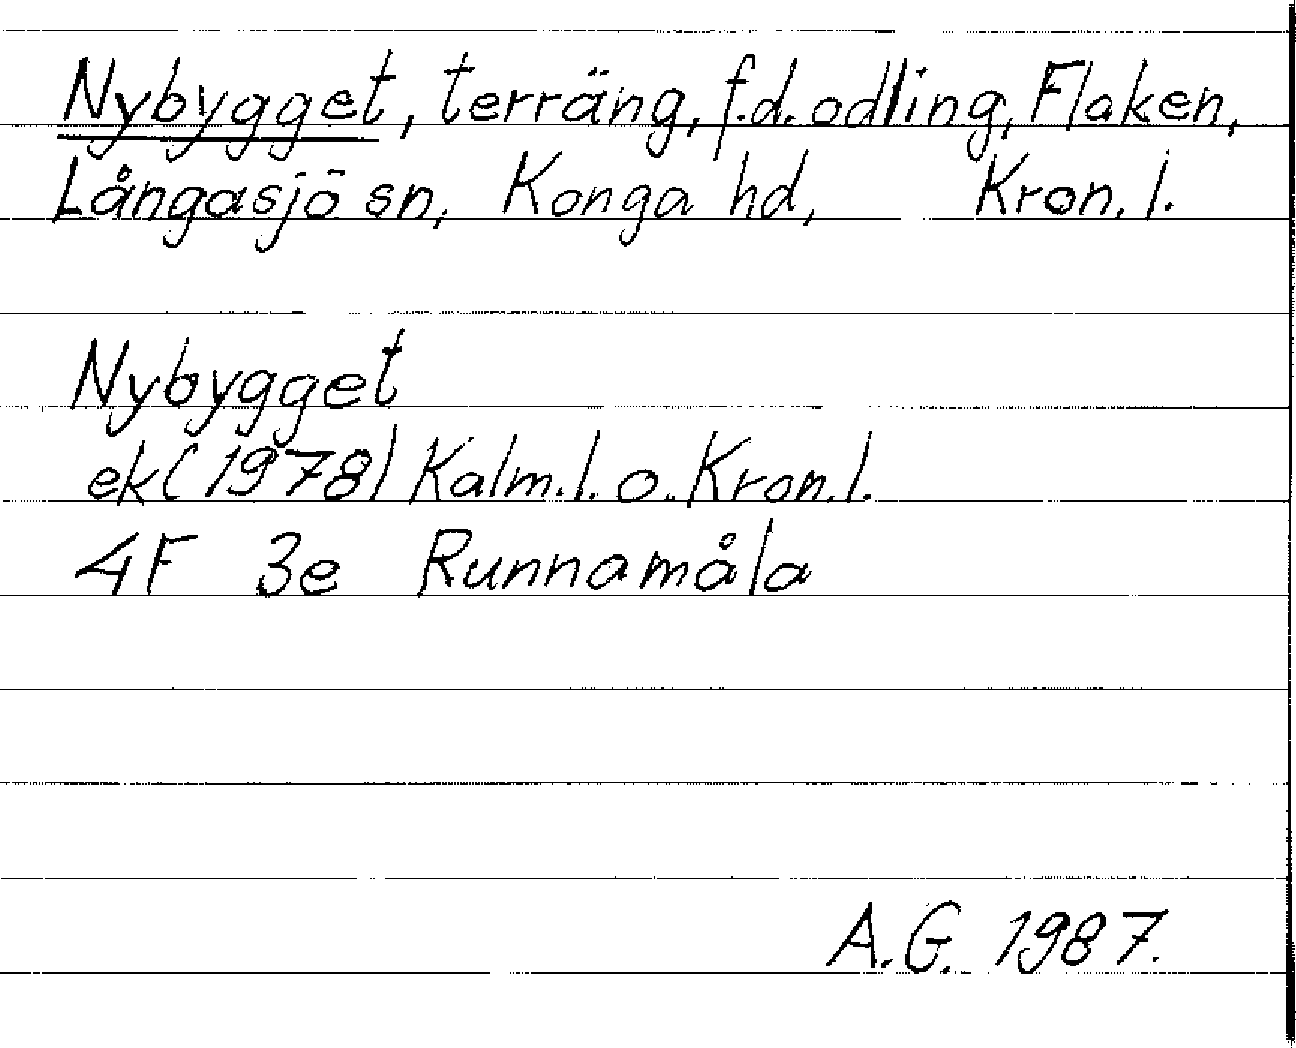 Nybygget, terräng, f.d. odling, Flaken,
Långasjö sn, Konga hd, Kron. l.
Nybygget
ek (1978) Kalm. l. o. Kron. l.
4F 3e Runnamåla
A.G. 1987.